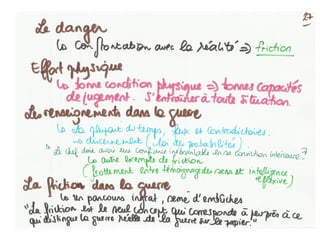 27
Le danger
↳ Confrontation avec la réalité => friction
Effort physique
↳ bonne condition physique => bonnes capacités
de jugement. S'entraîner à toute situation.
Les renseignements dans la guerre
↳ la plupart du temps, faux et contradictoires.
→ discernement (loi de probabilités)
"Le chef doit avoir une confiance inébranlable en sa conviction intérieure"
↳ autre exemple de friction
(frottement entre témoignage des sens et intelligence
réflexive)
La friction dans la guerre
↳ un parcours ingrat, semé d'embûches
"La friction est le seul concept qui corresponde à peu près à ce
qui distingue la guerre réelle de la guerre sur le papier."